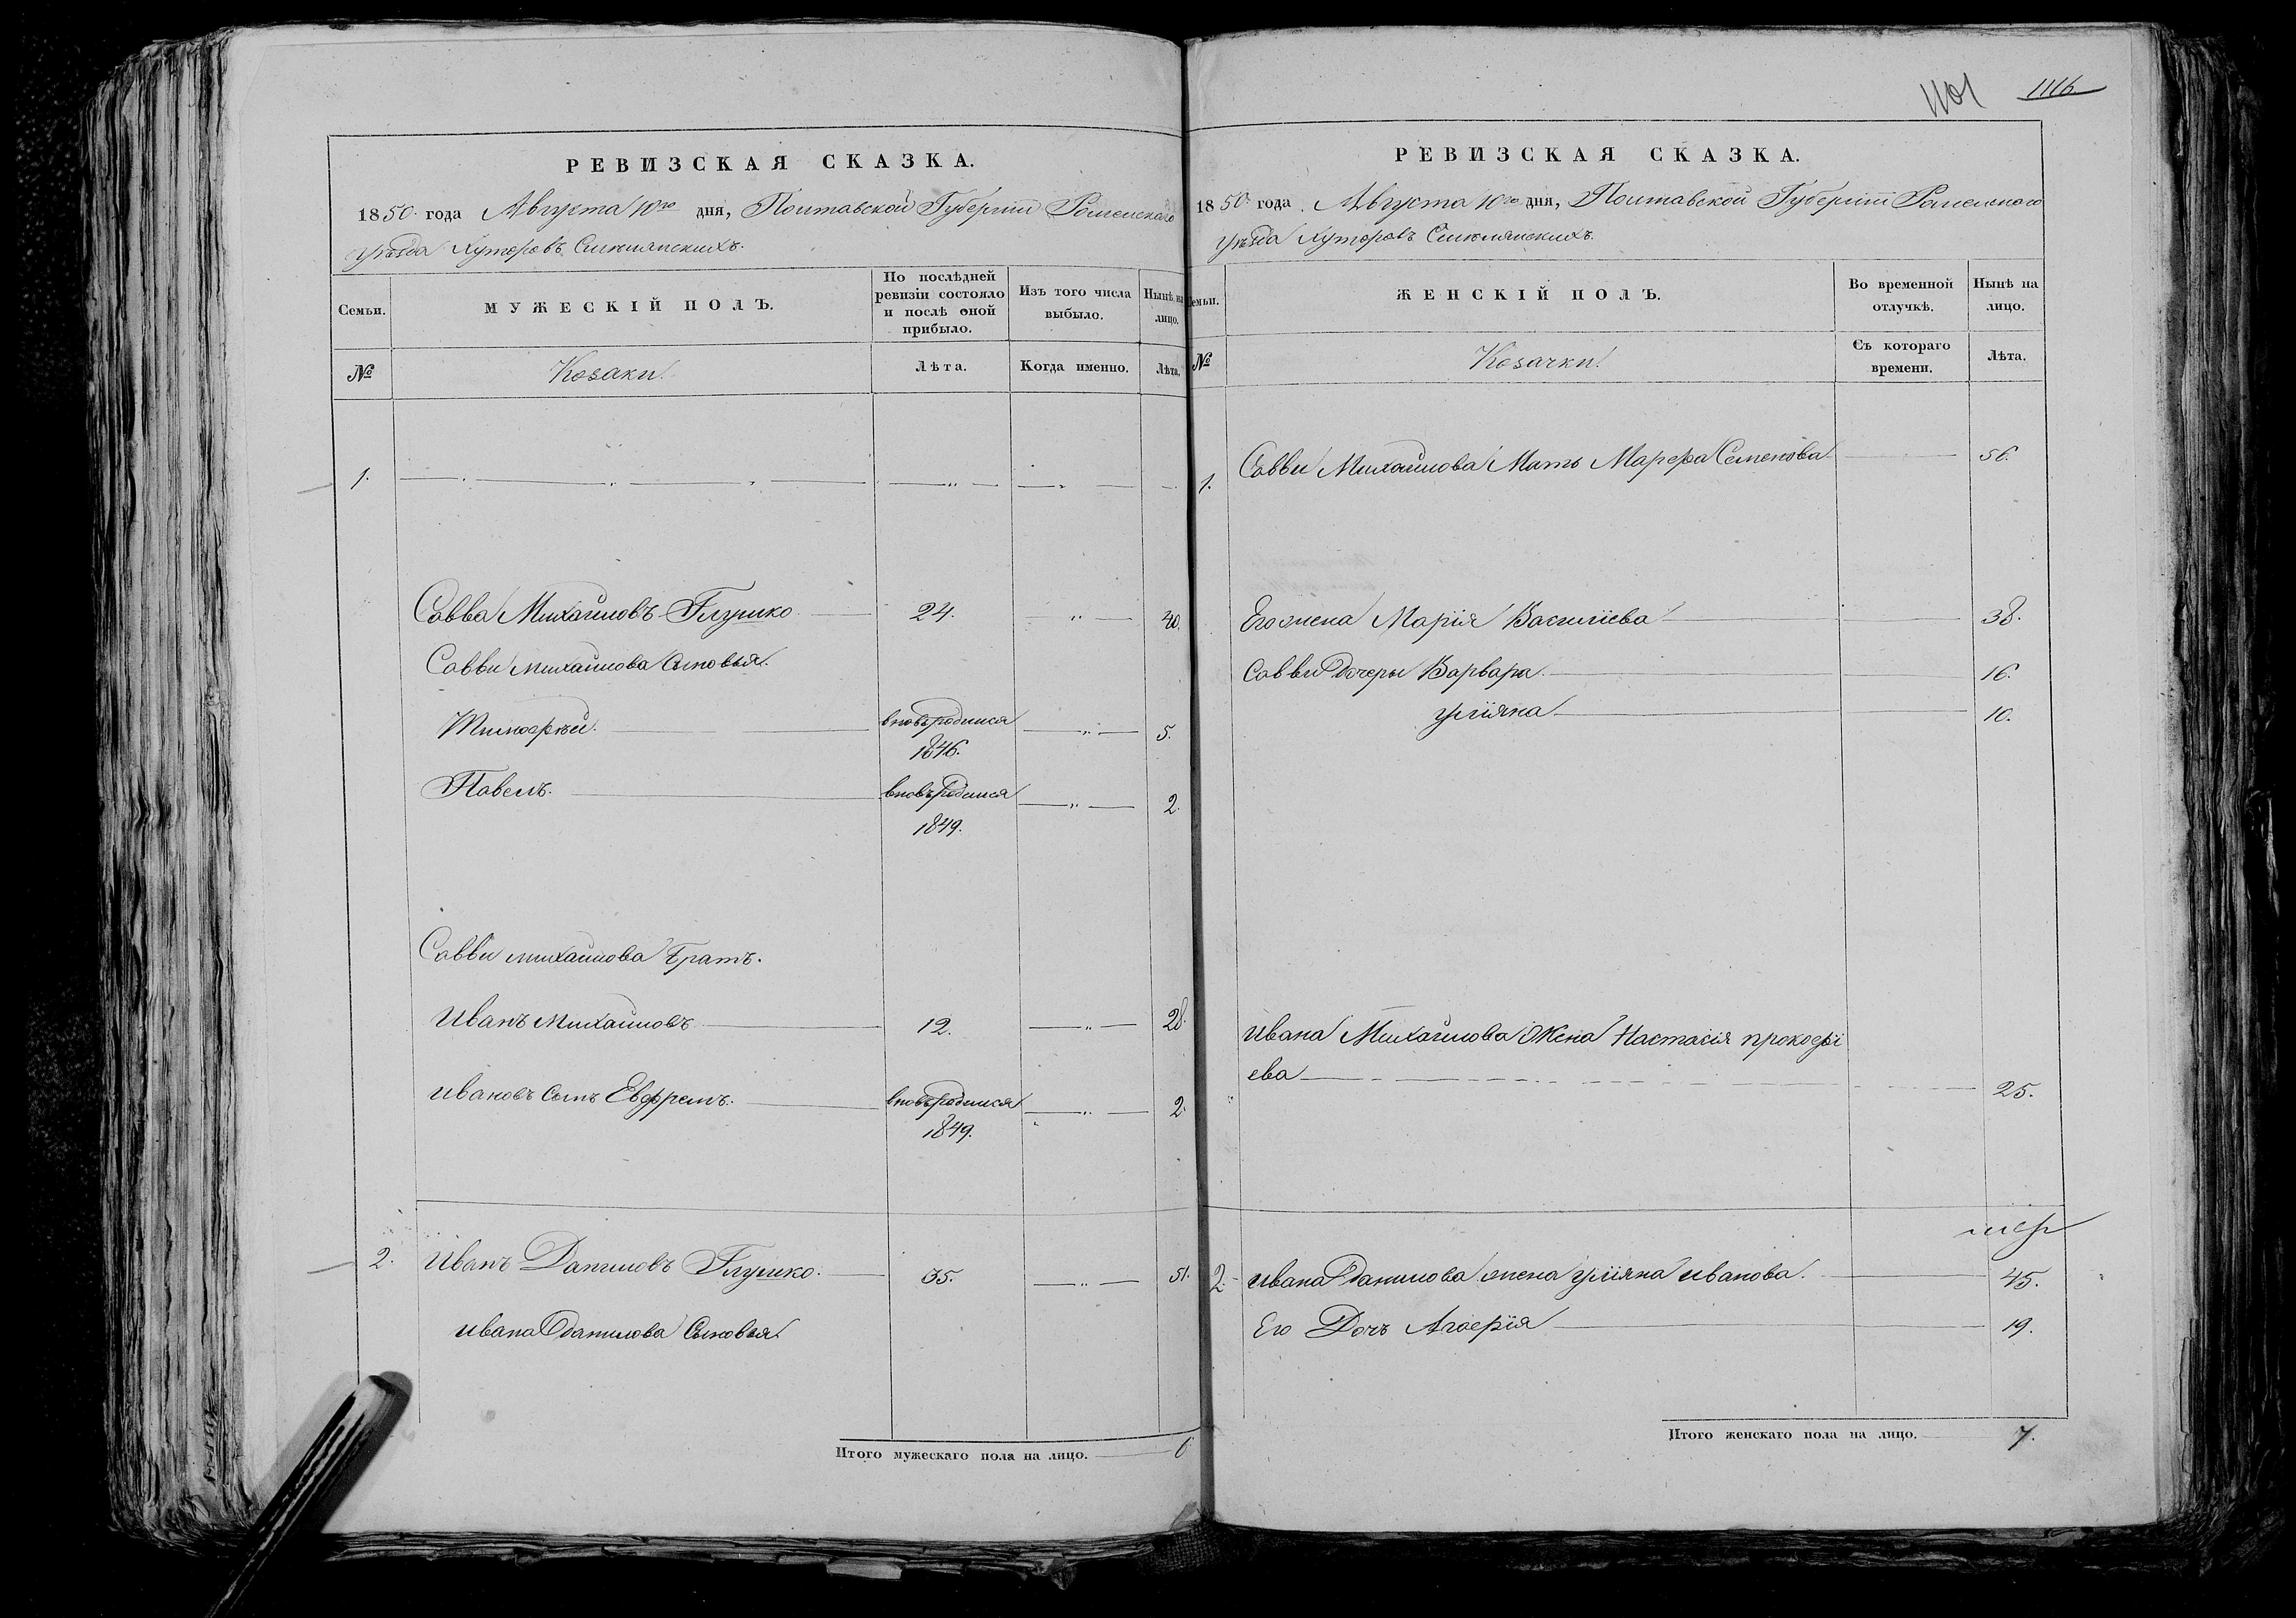 РЕВИЗСКАЯ СКАЗКА.
1850. года Августа 10го дня, Полтавской Губерніи Роменскаго
уѣзда Хуторовъ
Семьи.
МУЖЕСКІЙ ПОЛЪ.
По послѣдней
ревизіи состояло
и послѣ оной
прибыло.
Изъ того числа
выбыло.
Нынѣ на
лицо.
№
Козаки.
Лѣта.
Когда именно.
Лѣта.
1.
Савва Михайловъ Глушко 24. 40.
Саввы Михайлова Сыновья.
Тимофѣй. вновьродился 5.
1846.
Павелъ. вновьродился 2.
1849.
Саввы михайлова Братъ.
Иванъ Михайловъ 12. 28.
ивановъ Сынъ Евфремъ. вновьродился 2.
1849.
2. Иванъ Даниловъ Глушко. 35. 51.
ивана Данилова Сыновья.
Итого мужескаго пола на лицо. 6
1101 1116.
РЕВИЗСКАЯ СКАЗКА.
1850. года Августа 10го дня, Полтавской Губерніи Роменского
уѣзда Хуторовъ
Семьи.
ЖЕНСКІЙ ПОЛЪ.
Во временной
отлучкѣ.
Нынѣ на
лицо.
№
Козачки.
Съ котораго
времени.
Лѣта.
1. Саввы Михайлова Мать Марфа Семенова 56.
Его жена Марія Василіева 38.
Саввы Дочеры Варвара 16.
уліяна 10.
ивана Михайлова Жена Настасія прокофі
ева 25.
2. ивана Данилова жена уліяна иванова. 45.
Его Дочь Агафія 19.
Итого женскаго пола на лицо. 7.